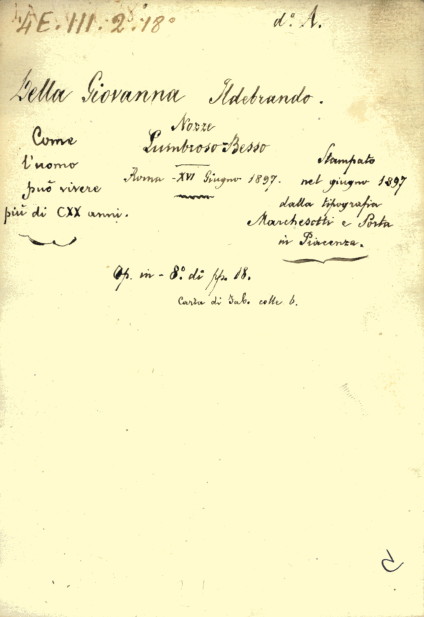 4 E. III. 2. 18°
d°. A.
Della Giovanna Ildebrando.
Come
l'uomo
può vivere
più di CXX anni.
Nozze
Lumbroso-Besso
Roma - XVI Giugno 1897.
Stampato
nel giugno 1897
dalla tipografia
Marchesotti e Porta
in Piacenza.
Op. in - 8.° di pp. 18.
Carta di colle 6.